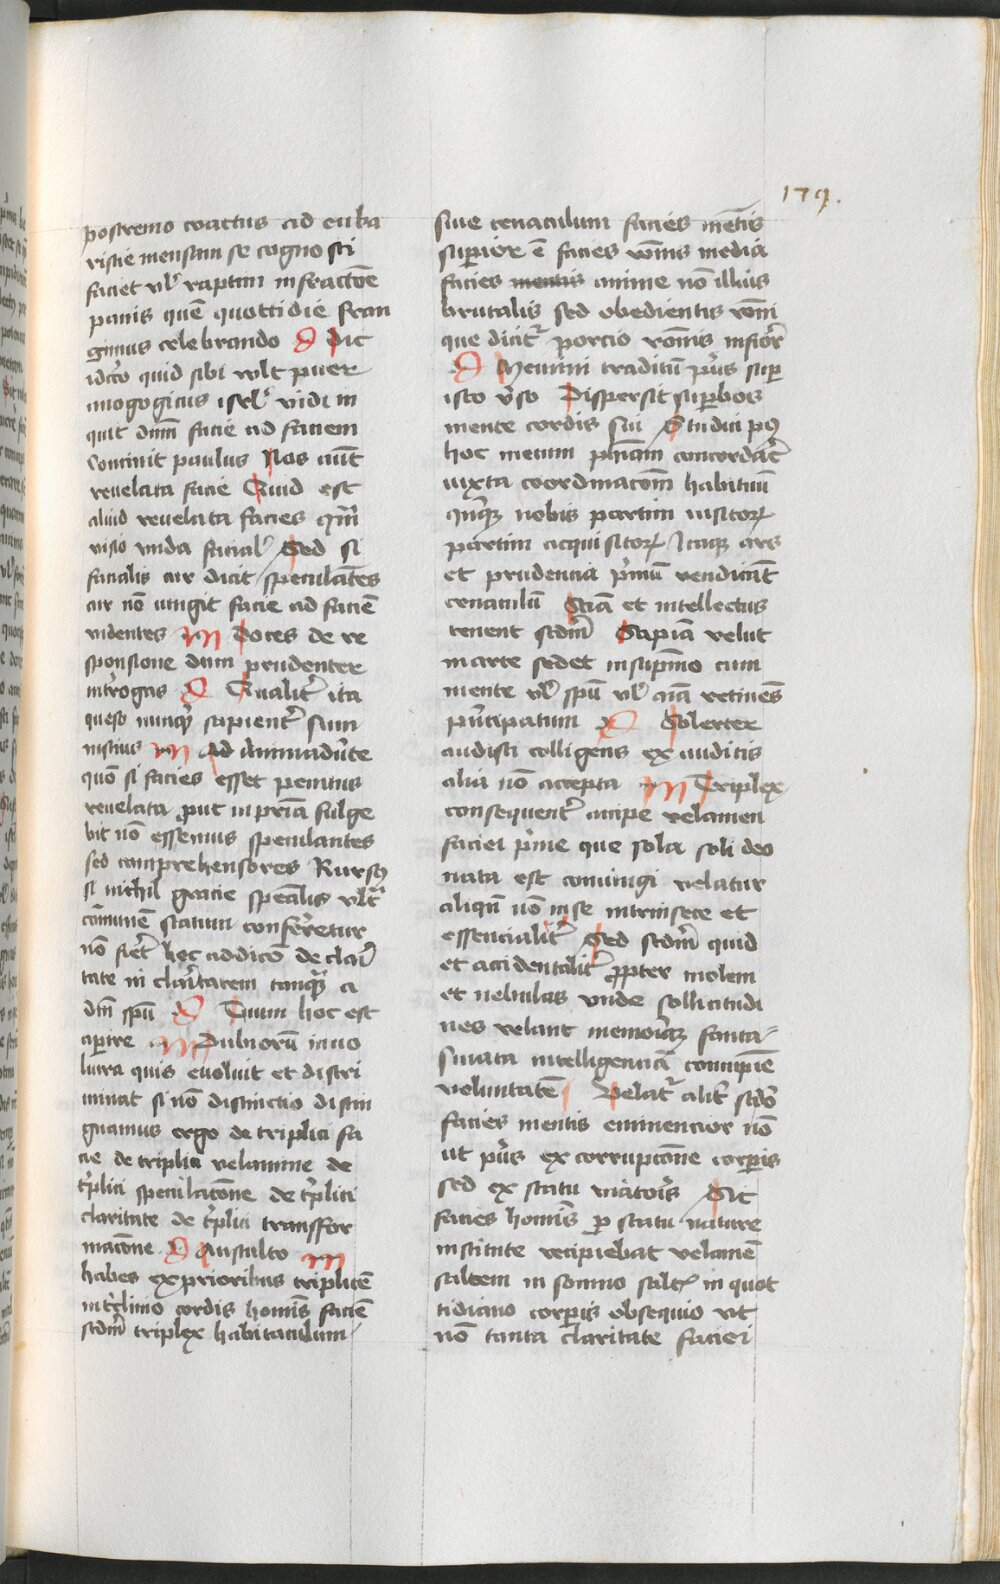 179.
postremo coactus ad euka
ristie mensam se cognosci
faciet vel raptim infractione
panis quem quottidie fran
gimus celebrando D Dic
idcirco quid sibi vult puer
anagogicus israel vidi in
quit dominum facie ad faciem
Concinit paulus Nos autem
reuelata facie Quid est
aliud reuelata facies quam
visio nuda facial Sed si
facialis cur dicit speculantes
cur non iungit facie ad faciem
videntes M Doces de re
sponsione dum prudenter
interrogas D Qualiter ita
queso nunquam sapienter sum
M Ad animaduerte
quoniam si facies esset penitus
reuelata prout in patria fulge
bit non essemus speculantes
sed comprehensores Rursus
si nichil gracie specialis vltra
communem statum conferretur
non fieret hec addicio de clari
tate in claritatem tanquam a
domini spiritu D Tuum hoc est
aperire M Puluorum inuo
lucra quis euoluit et discri
minat si non distinctio distin
guamus ergo de triplici fa
cie de triplici velamine de
triplici speculatione de triplici
claritate de triplici transfor
macione D Ausculto M
habes ex prioribus triplicem
in triclinio cordis hominis faciem
secundum triplex habitaculum
siue cenaculum facies mentis
superior est facies rationis media
facies mentis anime non illius
brutalis sed obedientis rationi
que dicitur porcio rationis inferior
D Memini traditum prius super
isto verso Dispersit superbos
mente cordis sui Studui post
hoc meum concordare
iuxta coordinacionem habituum
quinque nobis partim insitorum
partim acquisitorum Itaque ars
et prudencia primum vendicant
cenaculum Sciencia et intellectus
tenent secundum Sapiencia velut
in arce sedet in supremo cum
mente vel spiritu vel eciam retinens
principatum D Solerter
audisti colligens ex auditis
alia non accepta M Triplex
consequenter accipe velamen
faciei prime que sola soli deo
nata est coniungi velatur
aliquando non in se intrinsece et
essencialiter Sed secundum quid
et accidentaliter propter molem
et nebulas vnde sollicitudi
nes velant memoriamque fanta
smata intelligenciam concupiscencie
voluntatem Velatur aliter secundo
facies mentis eminencior non
ut prius ex corrupcione corporis
sed ex statu viatoris Sic
facies hominis pro statu nature
institute recipiebat velamen
saltem in somno saltem in quot
tidiano corporis obsequio vt
non tanta claritate faciei